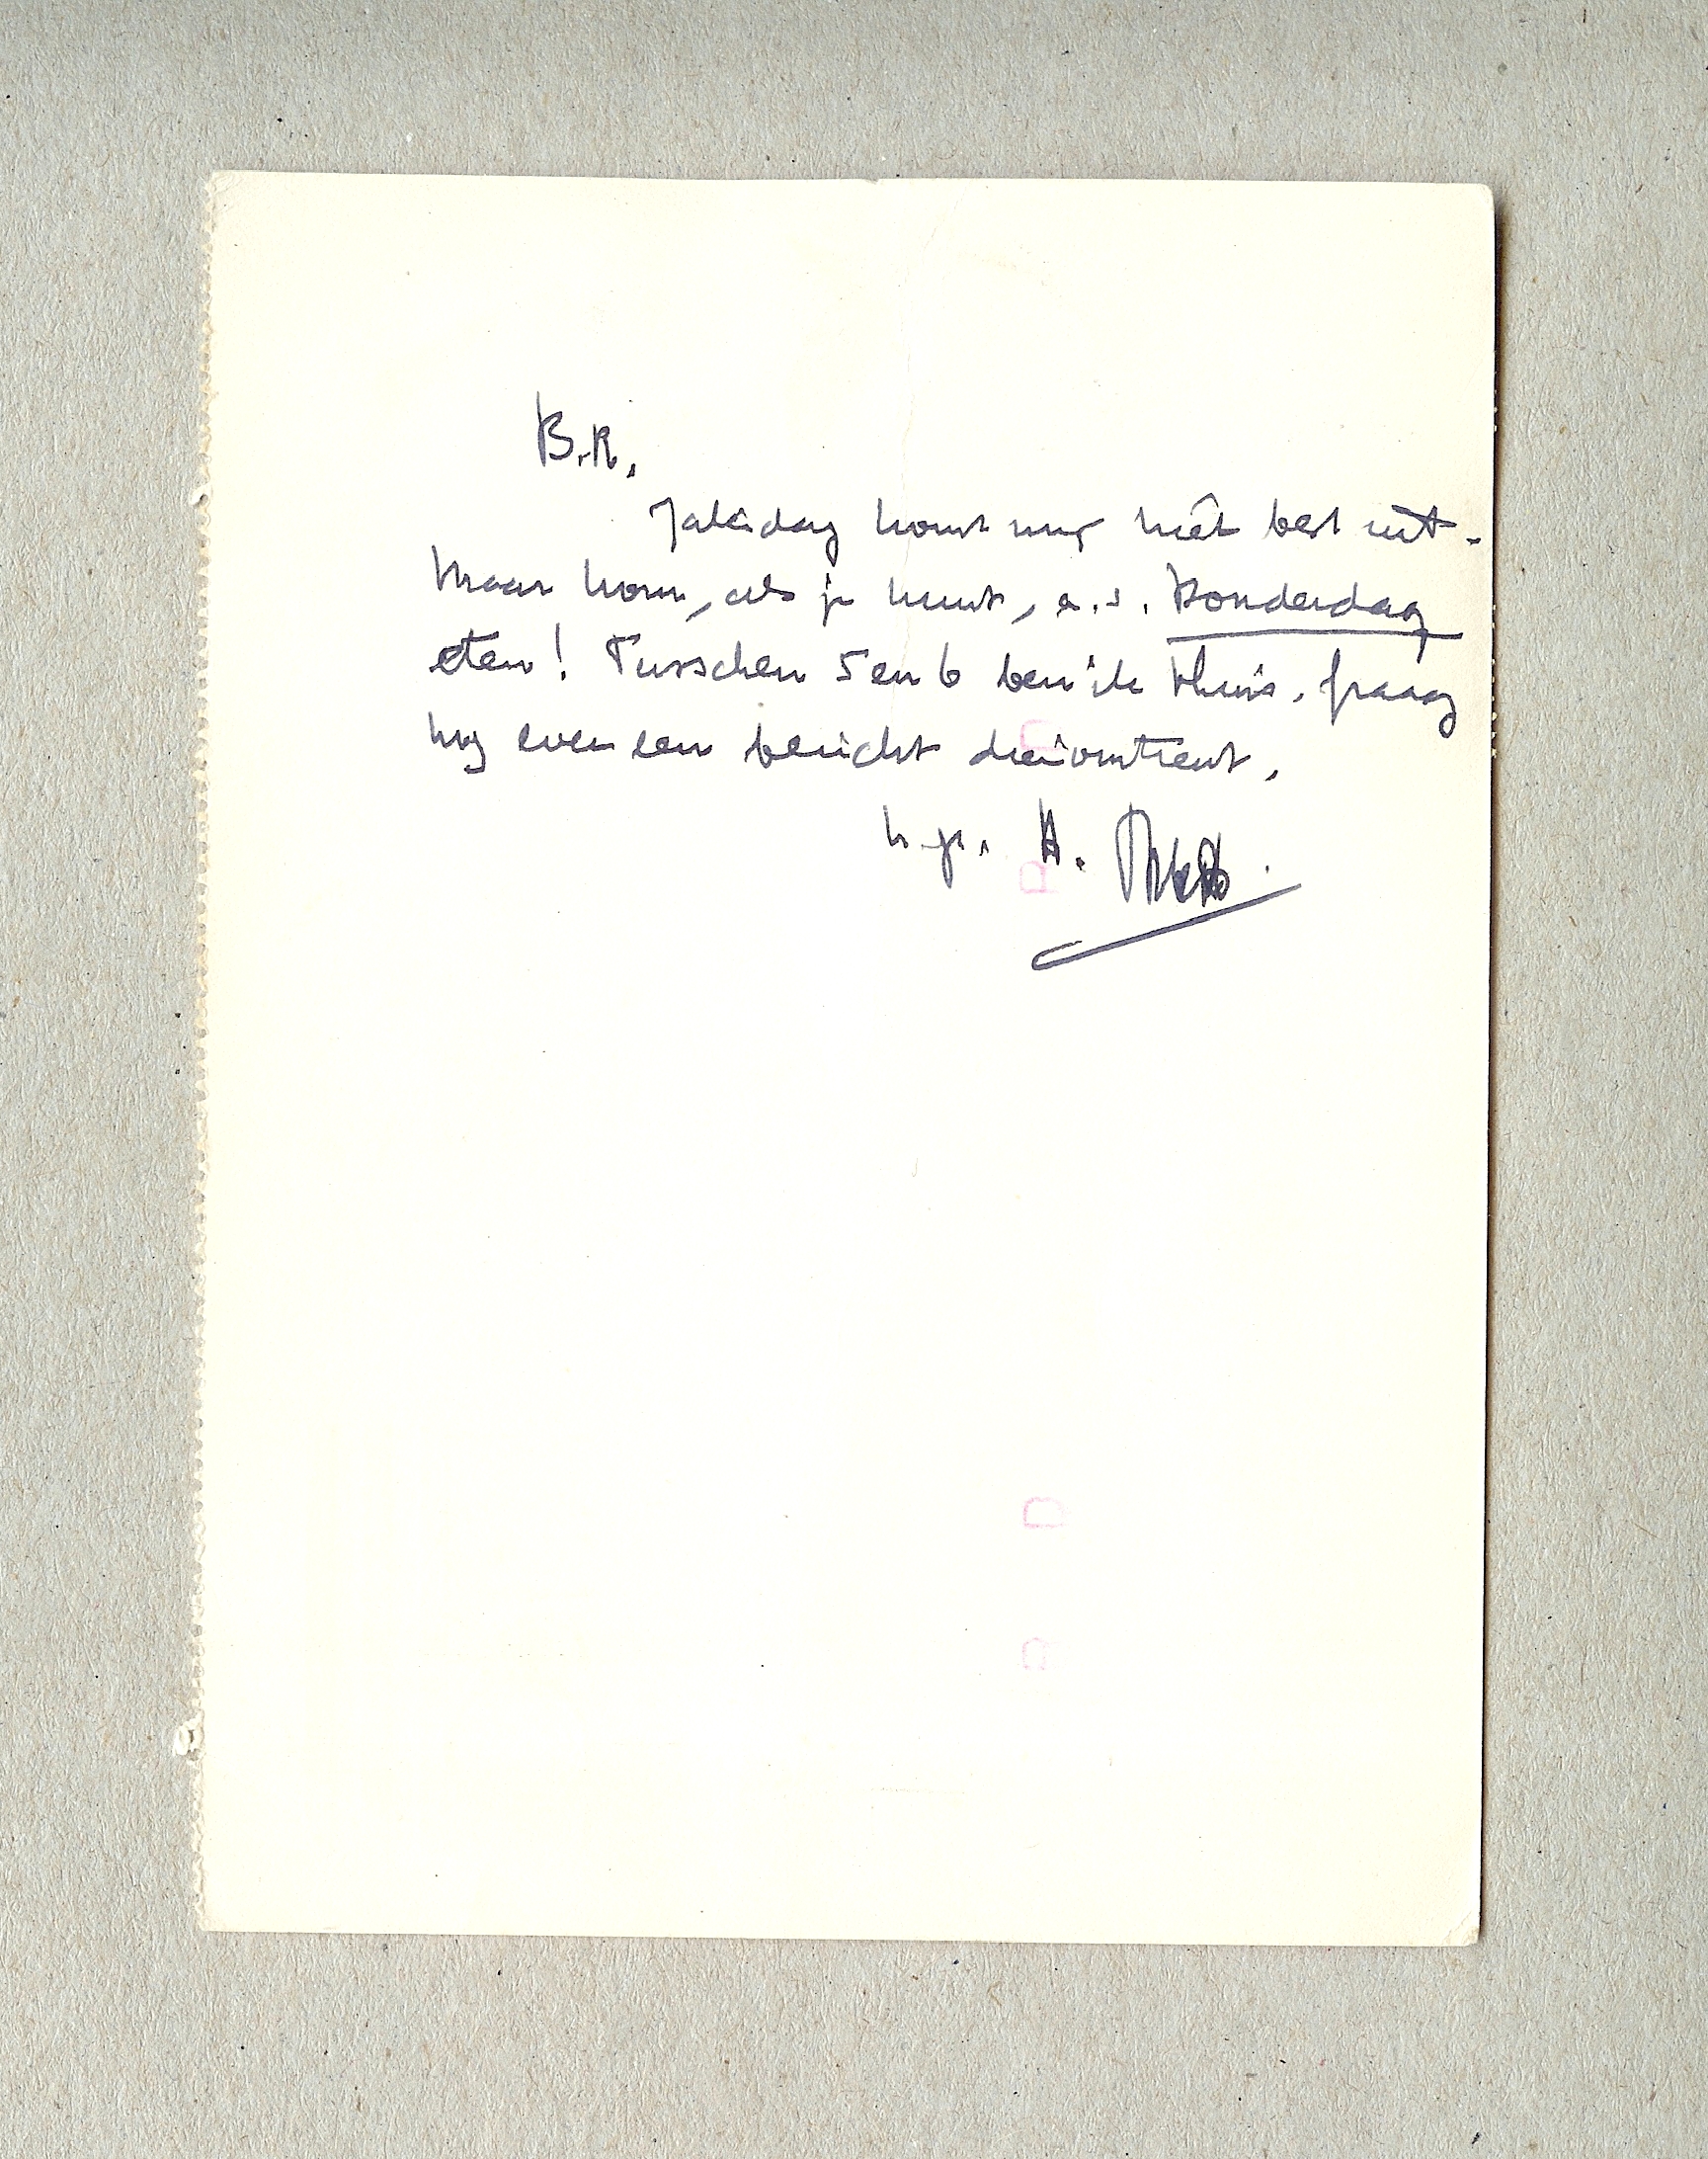 B.R.,
Zaterdag komt mij niet best uit.
Maar kom, als je kunt, a.s. Donderdag
eten! Tusschen 5 en 6 ben ik thuis, graag
nog even een bericht dienomtrent.
h.gr. H.